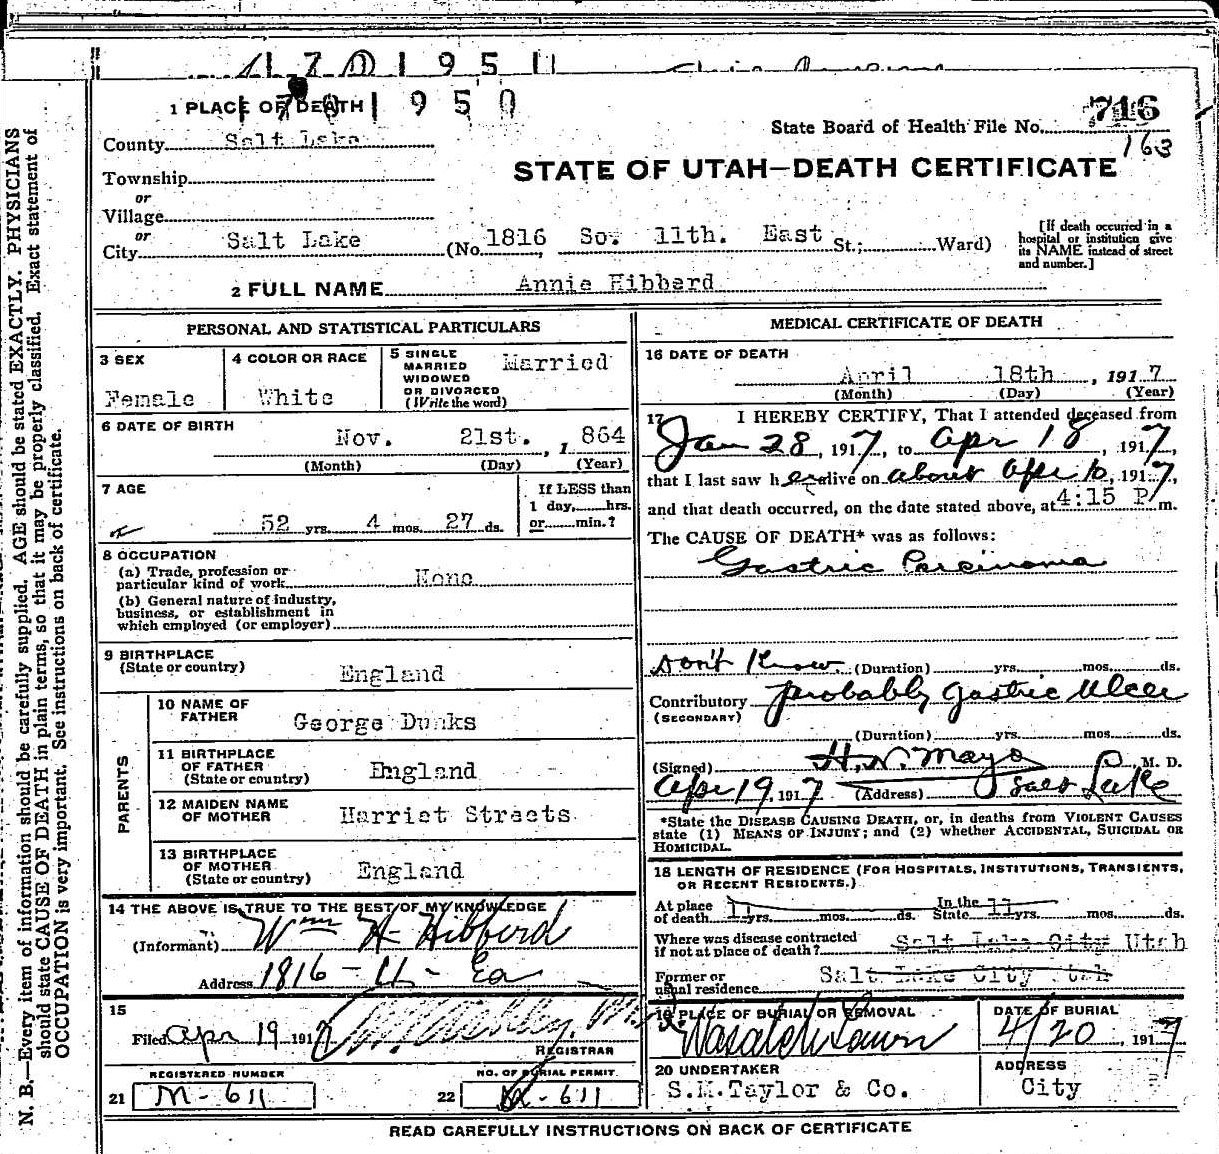 170195
1 PLACE OF DEATH 170 1950
State Board of Health File No. 716
163
County Salt Lake
STATE OF UTAH—DEATH CERTIFICATE
Township
or
Village
or
City Salt Lake (No. 1816 So. 11th. East St.; Ward)
[If death occurred in a hospital or institution give its NAME instead of street and number.]
2 FULL NAME Annie Hibberd
PERSONAL AND STATISTICAL PARTICULARS
3 SEX
Female
4 COLOR OR RACE
White
5 SINGLE
MARRIED
WIDOWED
OR DIVORCED
(Write the word)
Married
6 DATE OF BIRTH
Nov. 21st., 1864
(Month) (Day) (Year)
7 AGE
52 yrs. 4 mos. 27 ds.
If LESS than
1 day, hrs.
or min.?
8 OCCUPATION
(a) Trade, profession or
particular kind of work None
(b) General nature of industry,
business, or establishment in
which employed (or employer)
9 BIRTHPLACE
(State or country) England
PARENTS
10 NAME OF
FATHER George Dunks
11 BIRTHPLACE
OF FATHER
(State or country) England
12 MAIDEN NAME
OF MOTHER Harriet Streets
13 BIRTHPLACE
OF MOTHER
(State or country) England
14 THE ABOVE IS TRUE TO THE BEST OF MY KNOWLEDGE
(Informant) Wm H Hibberd
Address 1816 - 11 - Ea
15
Filed Apr 19 1917
REGISTRAR
REGISTERED NUMBER
21 M-611
NO. OF BURIAL PERMIT
22 M-611
MEDICAL CERTIFICATE OF DEATH
16 DATE OF DEATH
April 18th, 1917
(Month) (Day) (Year)
17 I HEREBY CERTIFY, That I attended deceased from
Jan 28, 1917, to Apr 18, 1917,
that I last saw her alive on about Apr 10, 1917,
and that death occurred, on the date stated above, at 4:15 P m.
The CAUSE OF DEATH* was as follows:
Gastric Carcinoma
Don't Know (Duration) yrs. mos. ds.
Contributory probably Gastric Ulcer
(SECONDARY)
(Duration) yrs. mos. ds.
(Signed) H. N. Mayo, M. D.
Apr 19, 1917 (Address) Salt Lake
*State the DISEASE CAUSING DEATH, or, in deaths from VIOLENT CAUSES
state (1) MEANS OF INJURY; and (2) whether ACCIDENTAL, SUICIDAL OR
HOMICIDAL.
18 LENGTH OF RESIDENCE (FOR HOSPITALS, INSTITUTIONS, TRANSIENTS,
OR RECENT RESIDENTS.)
At place of death 11 yrs. mos. ds. In the State 11 yrs. mos. ds.
Where was disease contracted
if not at place of death? Salt Lake City Utah
Former or
usual residence Salt Lake City Utah
19 PLACE OF BURIAL OR REMOVAL
Wasatch Lawn
DATE OF BURIAL
4/20, 1917
20 UNDERTAKER
S.M.Taylor & Co.
ADDRESS
City
READ CAREFULLY INSTRUCTIONS ON BACK OF CERTIFICATE
N. B.—Every item of information should be carefully supplied. AGE should be stated EXACTLY. PHYSICIANS
should state CAUSE OF DEATH in plain terms, so that it may be properly classified. Exact statement of
OCCUPATION is very important. See instructions on back of certificate.